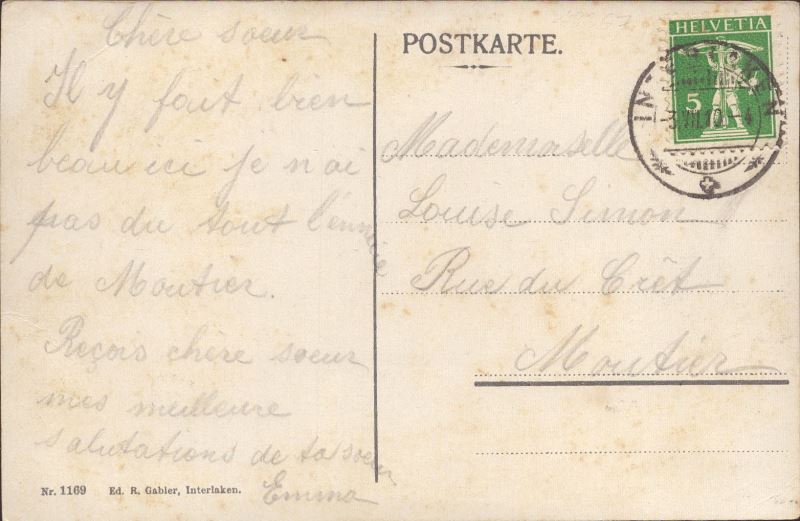 Chère soeur
Il y fait bien
beau ici je n ai
pas du tout l'ennuie
de Moutier.
Reçois chère soeur
mes meilleure
salutations de ta soeur
Emma
Nr. 1169 Ed. R. Gabler, Interlaken.
POSTKARTE.
HELVETIA
5
Mademaselle
Louise Simon
Rue du Crêt
Moutier